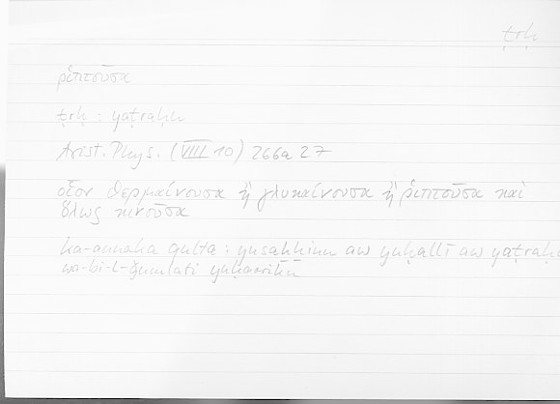 ṭrḥ
ῥιπτοῦσα
ṭrḥ : yaṭraḥu
Arist. Phys. (VIII 10) 266a 27
οἷον θερμαίνουσα ἢ γλυκαίνουσα ἢ ῥιπτοῦσα καὶ
ὅλως κινοῦσα
ka-annaka qulta : yusaḫḫinu aw yuḥallī aw yaṭraḥu
wa-bi-l-ǧumlati yuḥarriku